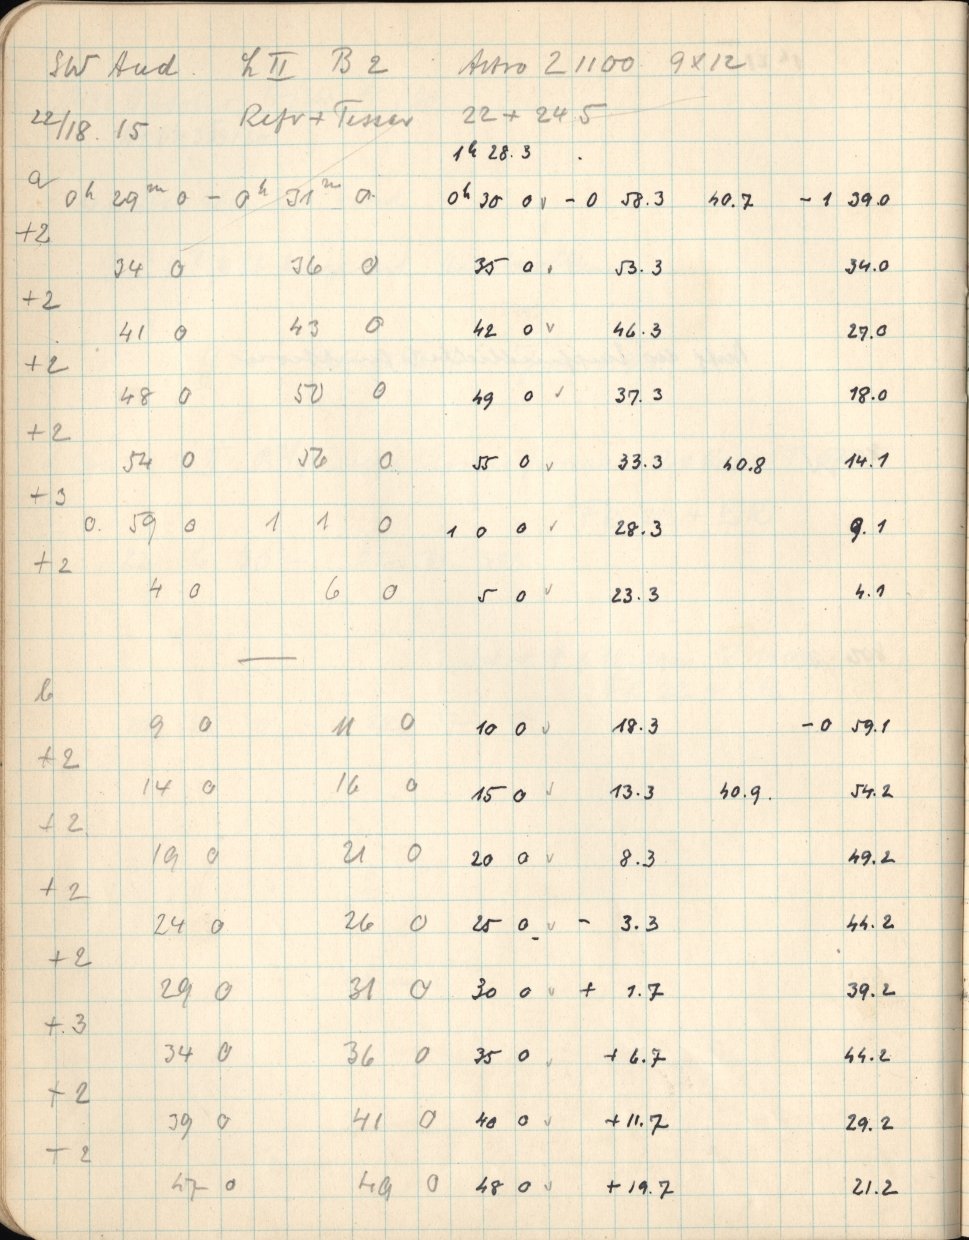 SW And L II B 2 Astro 21100 9x12
22/18. 15 Refr + Tessar 22 + 24 5
1h 28.3
a
0h 29m 0 - 0h 31m 0 0h 30 0 v - 0 58.3 40.7 - 1 39.0
+2
34 0 36 0 35 0 v 53.3 34.0
+2
41 0 43 0 42 0 v 46.3 27.0
+2
48 0 50 0 49 0 v 37.3 18.0
+2
54 0 56 0 55 0 v 33.3 40.8 14.1
+3
0. 59 0 1 1 0 1 0 0 v 28.3 9.1
+2
4 0 6 0 5 0 v 23.3 4.1
—
b
9 0 11 0 10 0 v 18.3 - 0 59.1
+2
14 0 16 0 15 0 v 13.3 40.9. 54.2
+2
19 0 21 0 20 0 v 8.3 49.2
+2
24 0 26 0 25 0 v - 3.3 44.2
+2
29 0 31 0 30 0 v + 1.7 39.2
+3
34 0 36 0 35 0 v + 6.7 44.2
+2
39 0 41 0 40 0 v + 11.7 29.2
+2
47 0 49 0 48 0 v + 19.7 21.2